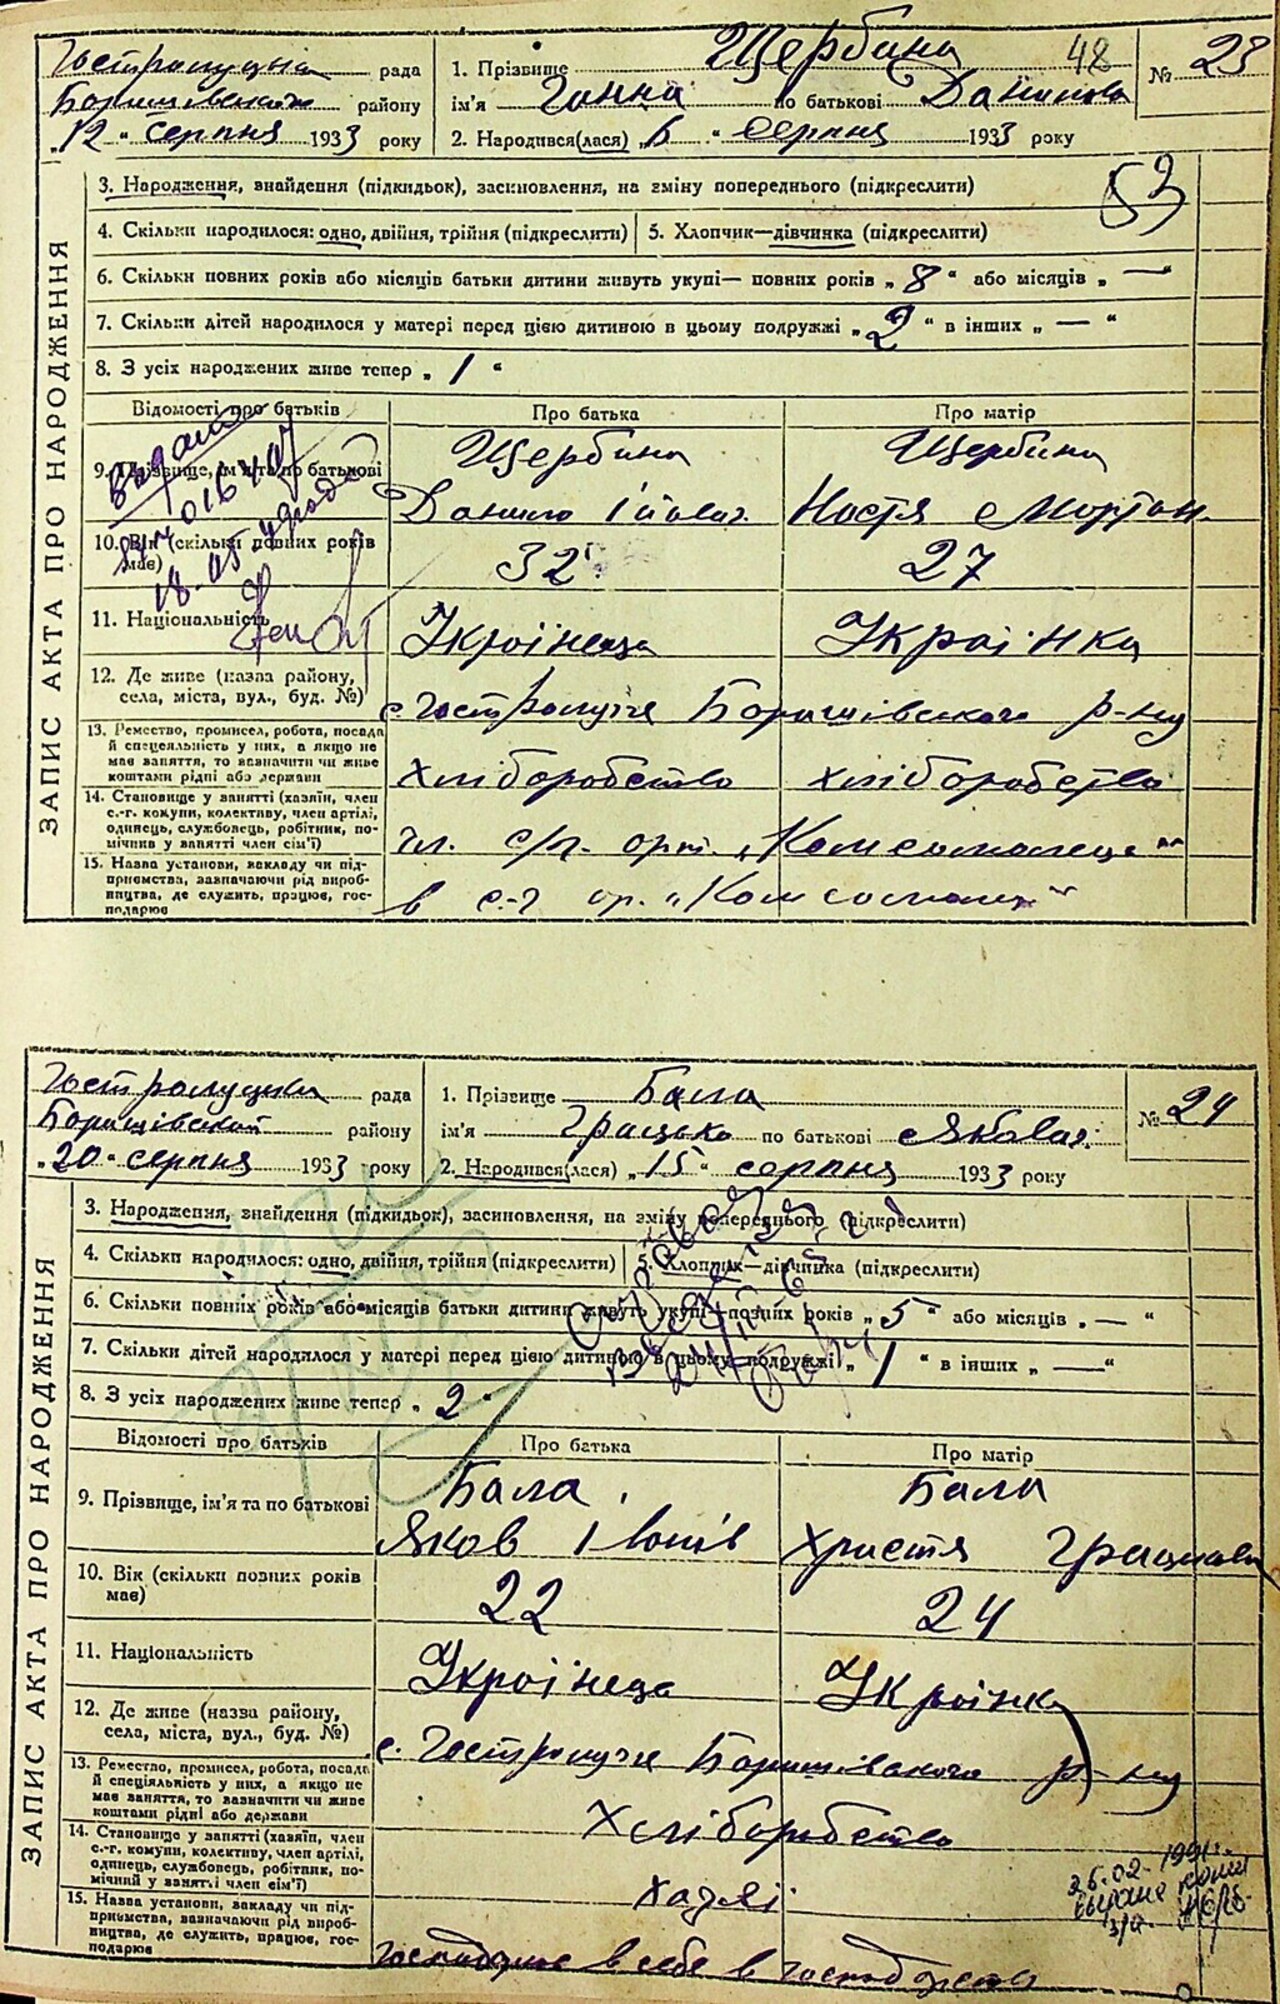 Гостролуцька рада
Баришівського району
„12“ серпня 1933 року
1. Прізвище Щербина 48
ім'я Ганна по батькові Данилова
2. Народився(лася) „6“ серпня 1933 року
№ 23
ЗАПИС АКТА ПРО НАРОДЖЕННЯ
3. Народження, знайдення (підкидьок), засиновлення, на зміну попереднього (підкреслити)
53
4. Скільки народилося: одно, двійня, трійня (підкреслити) 5. Хлопчик—дівчинка (підкреслити)
6. Скільки повних років або місяців батьки дитини живуть укупі— повних років „8“ або місяців „—“
7. Скільки дітей народилося у матері перед цією дитиною в цьому подружжі „2“ в інших „—“
8. З усіх народжених живе тепер „1“
Відомості про батьків Про батька Про матір
9. Прізвище, ім'я та по батькові Щербина Щербина
Данило Настя
10. Вік (скільки повних років має) 32 27
11. Національність Українець Українка
12. Де живе (назва району, села, міста, вул., буд. №) с. Гостролуччя Баришівського р-ну
13. Ремество, промисел, робота, посада й спеціяльність у них, а якщо не має заняття, то зазначити чи живе коштами рідні або держави хліборобство хліборобство
14. Становище у занятті (хазяїн, член с.-г. комуни, колективу, член артілі, одинець, службовець, робітник, помічник у занятті член сім'ї) чл. с/г. арт. „Комсомолець“
15. Назва установи, закладу чи підприємства, зазначаючи рід виробництва, де служить, працює, господарює в с.-г ар. „Комсомолець“
Гостролуцька рада
Баришівський району
„20“ серпня 1933 року
1. Прізвище Бала
ім'я Грицько по батькові Яковач.
2. Народився(лася) „15“ серпня 1933 року
№ 24
ЗАПИС АКТА ПРО НАРОДЖЕННЯ
3. Народження, знайдення (підкидьок), засиновлення, на зміну попереднього (підкреслити)
4. Скільки народилося: одно, двійня, трійня (підкреслити) 5. Хлопчик—дівчинка (підкреслити)
6. Скільки повних років або місяців батьки дитини живуть укупі—повних років „5“ або місяців „—“
7. Скільки дітей народилося у матері перед цією дитиною в цьому подружжі „1“ в інших „—“
8. З усіх народжених живе тепер „2“
Відомості про батьків Про батька Про матір
9. Прізвище, ім'я та по батькові Бала Бала
Яков Христя
10. Вік (скільки повних років має) 22 24
11. Національність Українець Українка
12. Де живе (назва району, села, міста, вул., буд. №) с. Гостролуччя Баришівського р-ну
13. Ремество, промисел, робота, посада й спеціяльність у них, а якщо не має заняття, то зазначити чи живе коштами рідні або держави Хліборобство
14. Становище у занятті (хазяїн, член с.-г. комуни, колективу, член артілі, одинець, службовець, робітник, помічний у занятті член сім'ї) хазяї
26.02. 1991г.
15. Назва установи, закладу чи підприємства, зазначаючи рід виробництва, де служить, працює, господарює господарює в себе в господарстві